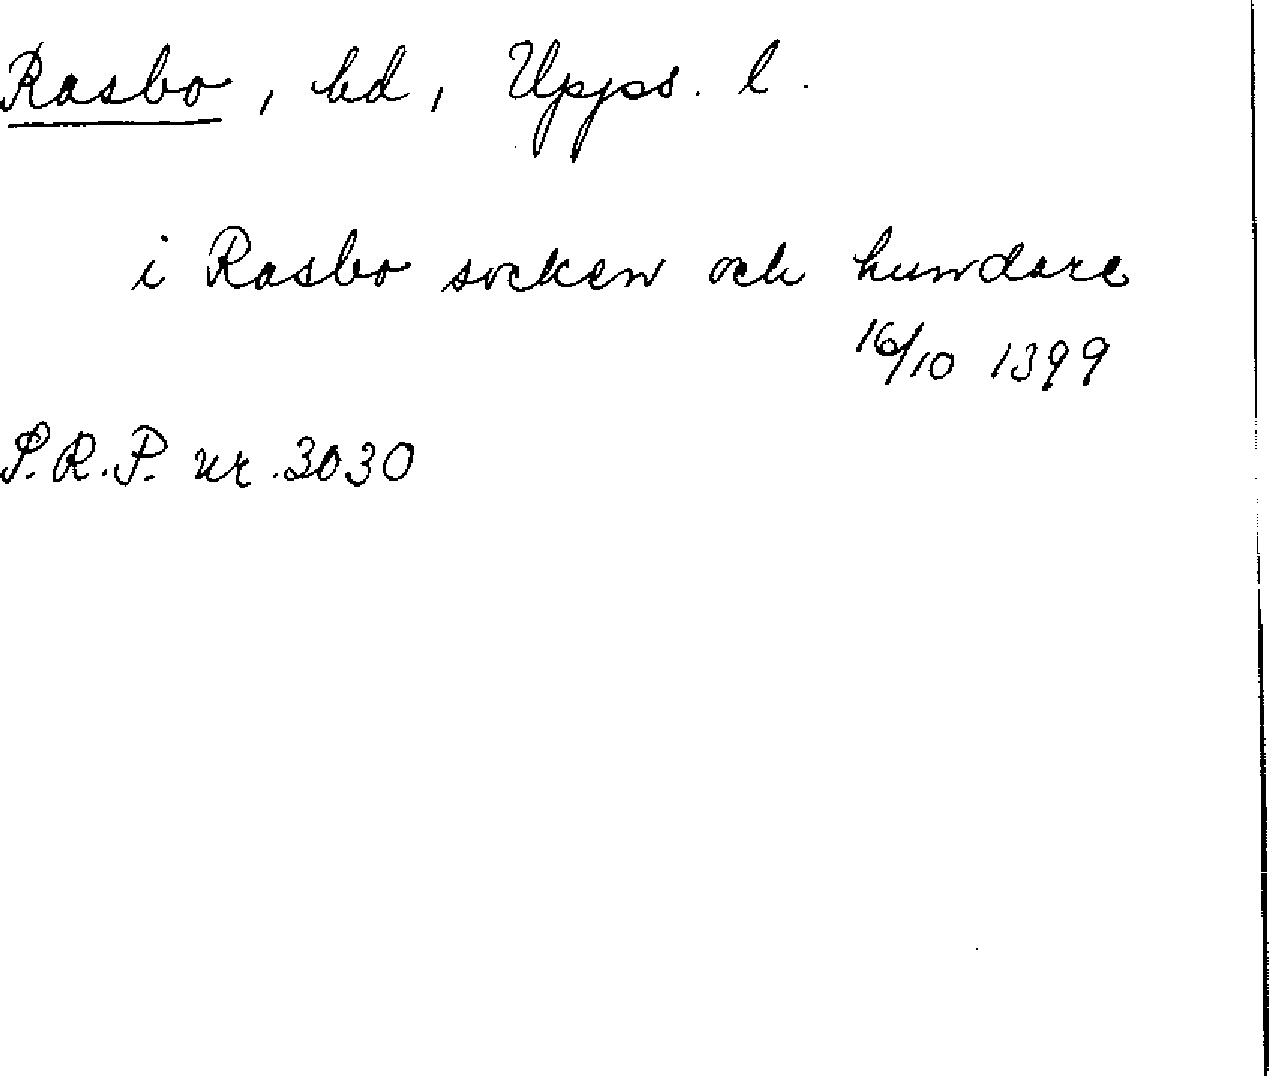 Rasbo, hd, Upps. l.
i Rasbo socken och hundare
16/10 1399
S.R.P. nr. 3030